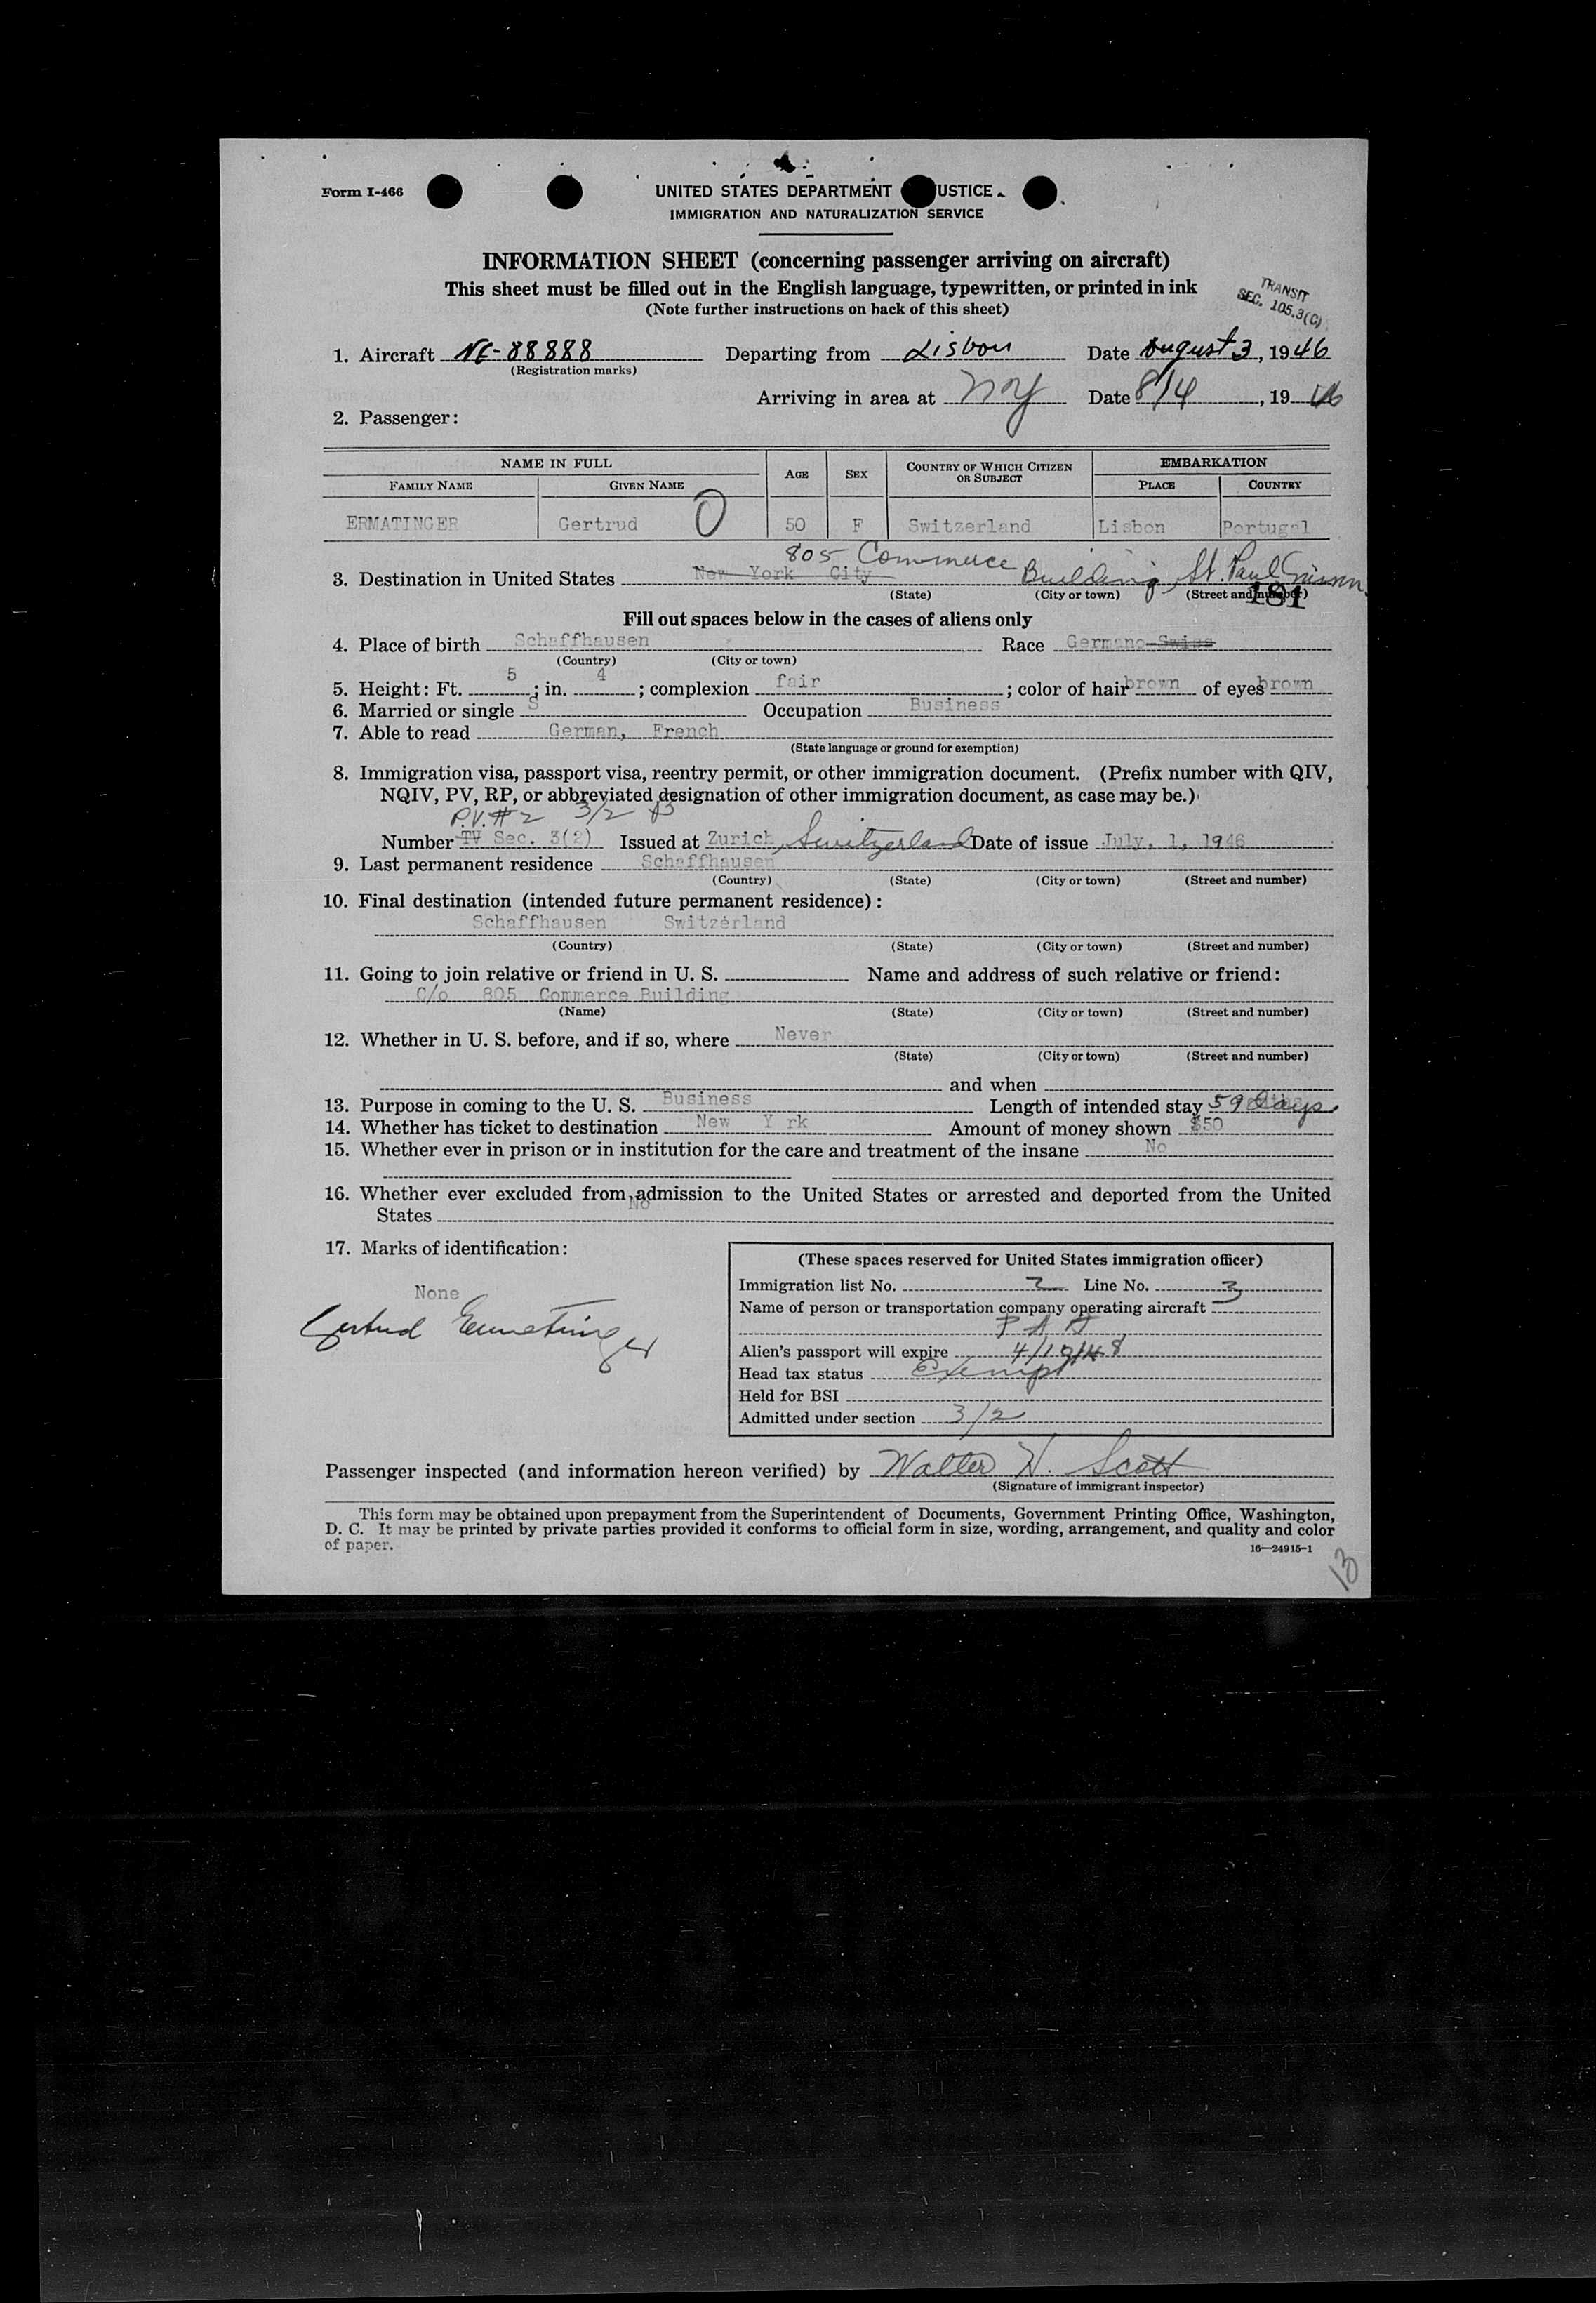 Form I-466
UNITED STATES DEPARTMENT USTICE
IMMIGRATION AND NATURALIZATION SERVICE
INFORMATION SHEET (concerning passenger arriving on aircraft)
This sheet must be filled out in the English language, typewritten, or printed in ink
(Note further instructions on back of this sheet)
TRANSIT
SEC. 105.3(C)
1. Aircraft NC-88888 Departing from Lisbon Date August 3, 1946
(Registration marks)
Arriving in area at NY Date 8/4, 1946
2. Passenger:
NAME IN FULL AGE SEX COUNTRY OF WHICH CITIZEN OR SUBJECT EMBARKATION
FAMILY NAME GIVEN NAME PLACE COUNTRY
ERMATINGER Gertrud 0 50 F Switzerland Lisbon Portugal
805 Commerce Building, St. Paul
3. Destination in United States New York City
(State) (City or town) (Street and number)
181
Fill out spaces below in the cases of aliens only
4. Place of birth Schaffhausen Race Germano-Swiss
(Country) (City or town)
5. Height: Ft. 5; in. 4; complexion fair; color of hair brown of eyes brown
6. Married or single S Occupation Business
7. Able to read German, French
(State language or ground for exemption)
8. Immigration visa, passport visa, reentry permit, or other immigration document. (Prefix number with QIV,
NQIV, PV, RP, or abbreviated designation of other immigration document, as case may be.)
P.V. #2 3/2
Number TV Sec. 3(2) Issued at Zurich, Switzerland Date of issue July, 1, 1946
9. Last permanent residence Schaffhausen
(Country) (State) (City or town) (Street and number)
10. Final destination (intended future permanent residence):
Schaffhausen Switzerland
(Country) (State) (City or town) (Street and number)
11. Going to join relative or friend in U. S. Name and address of such relative or friend:
C/o 805 Commerce Building
(Name) (State) (City or town) (Street and number)
12. Whether in U. S. before, and if so, where Never
(State) (City or town) (Street and number)
and when
13. Purpose in coming to the U. S. Business Length of intended stay 59 days
14. Whether has ticket to destination New Y rk Amount of money shown $50
15. Whether ever in prison or in institution for the care and treatment of the insane No
16. Whether ever excluded from admission to the United States or arrested and deported from the United
States No
17. Marks of identification:
None
Gertrud Ermatinger
(These spaces reserved for United States immigration officer)
Immigration list No. 2 Line No. 3
Name of person or transportation company operating aircraft
P A A
Alien's passport will expire 4/19/48
Head tax status Exempt
Held for BSI
Admitted under section 3/2
Passenger inspected (and information hereon verified) by Walter H. Scott
(Signature of immigrant inspector)
This form may be obtained upon prepayment from the Superintendent of Documents, Government Printing Office, Washington,
D. C. It may be printed by private parties provided it conforms to official form in size, wording, arrangement, and quality and color
of paper.
16—24915-1
13